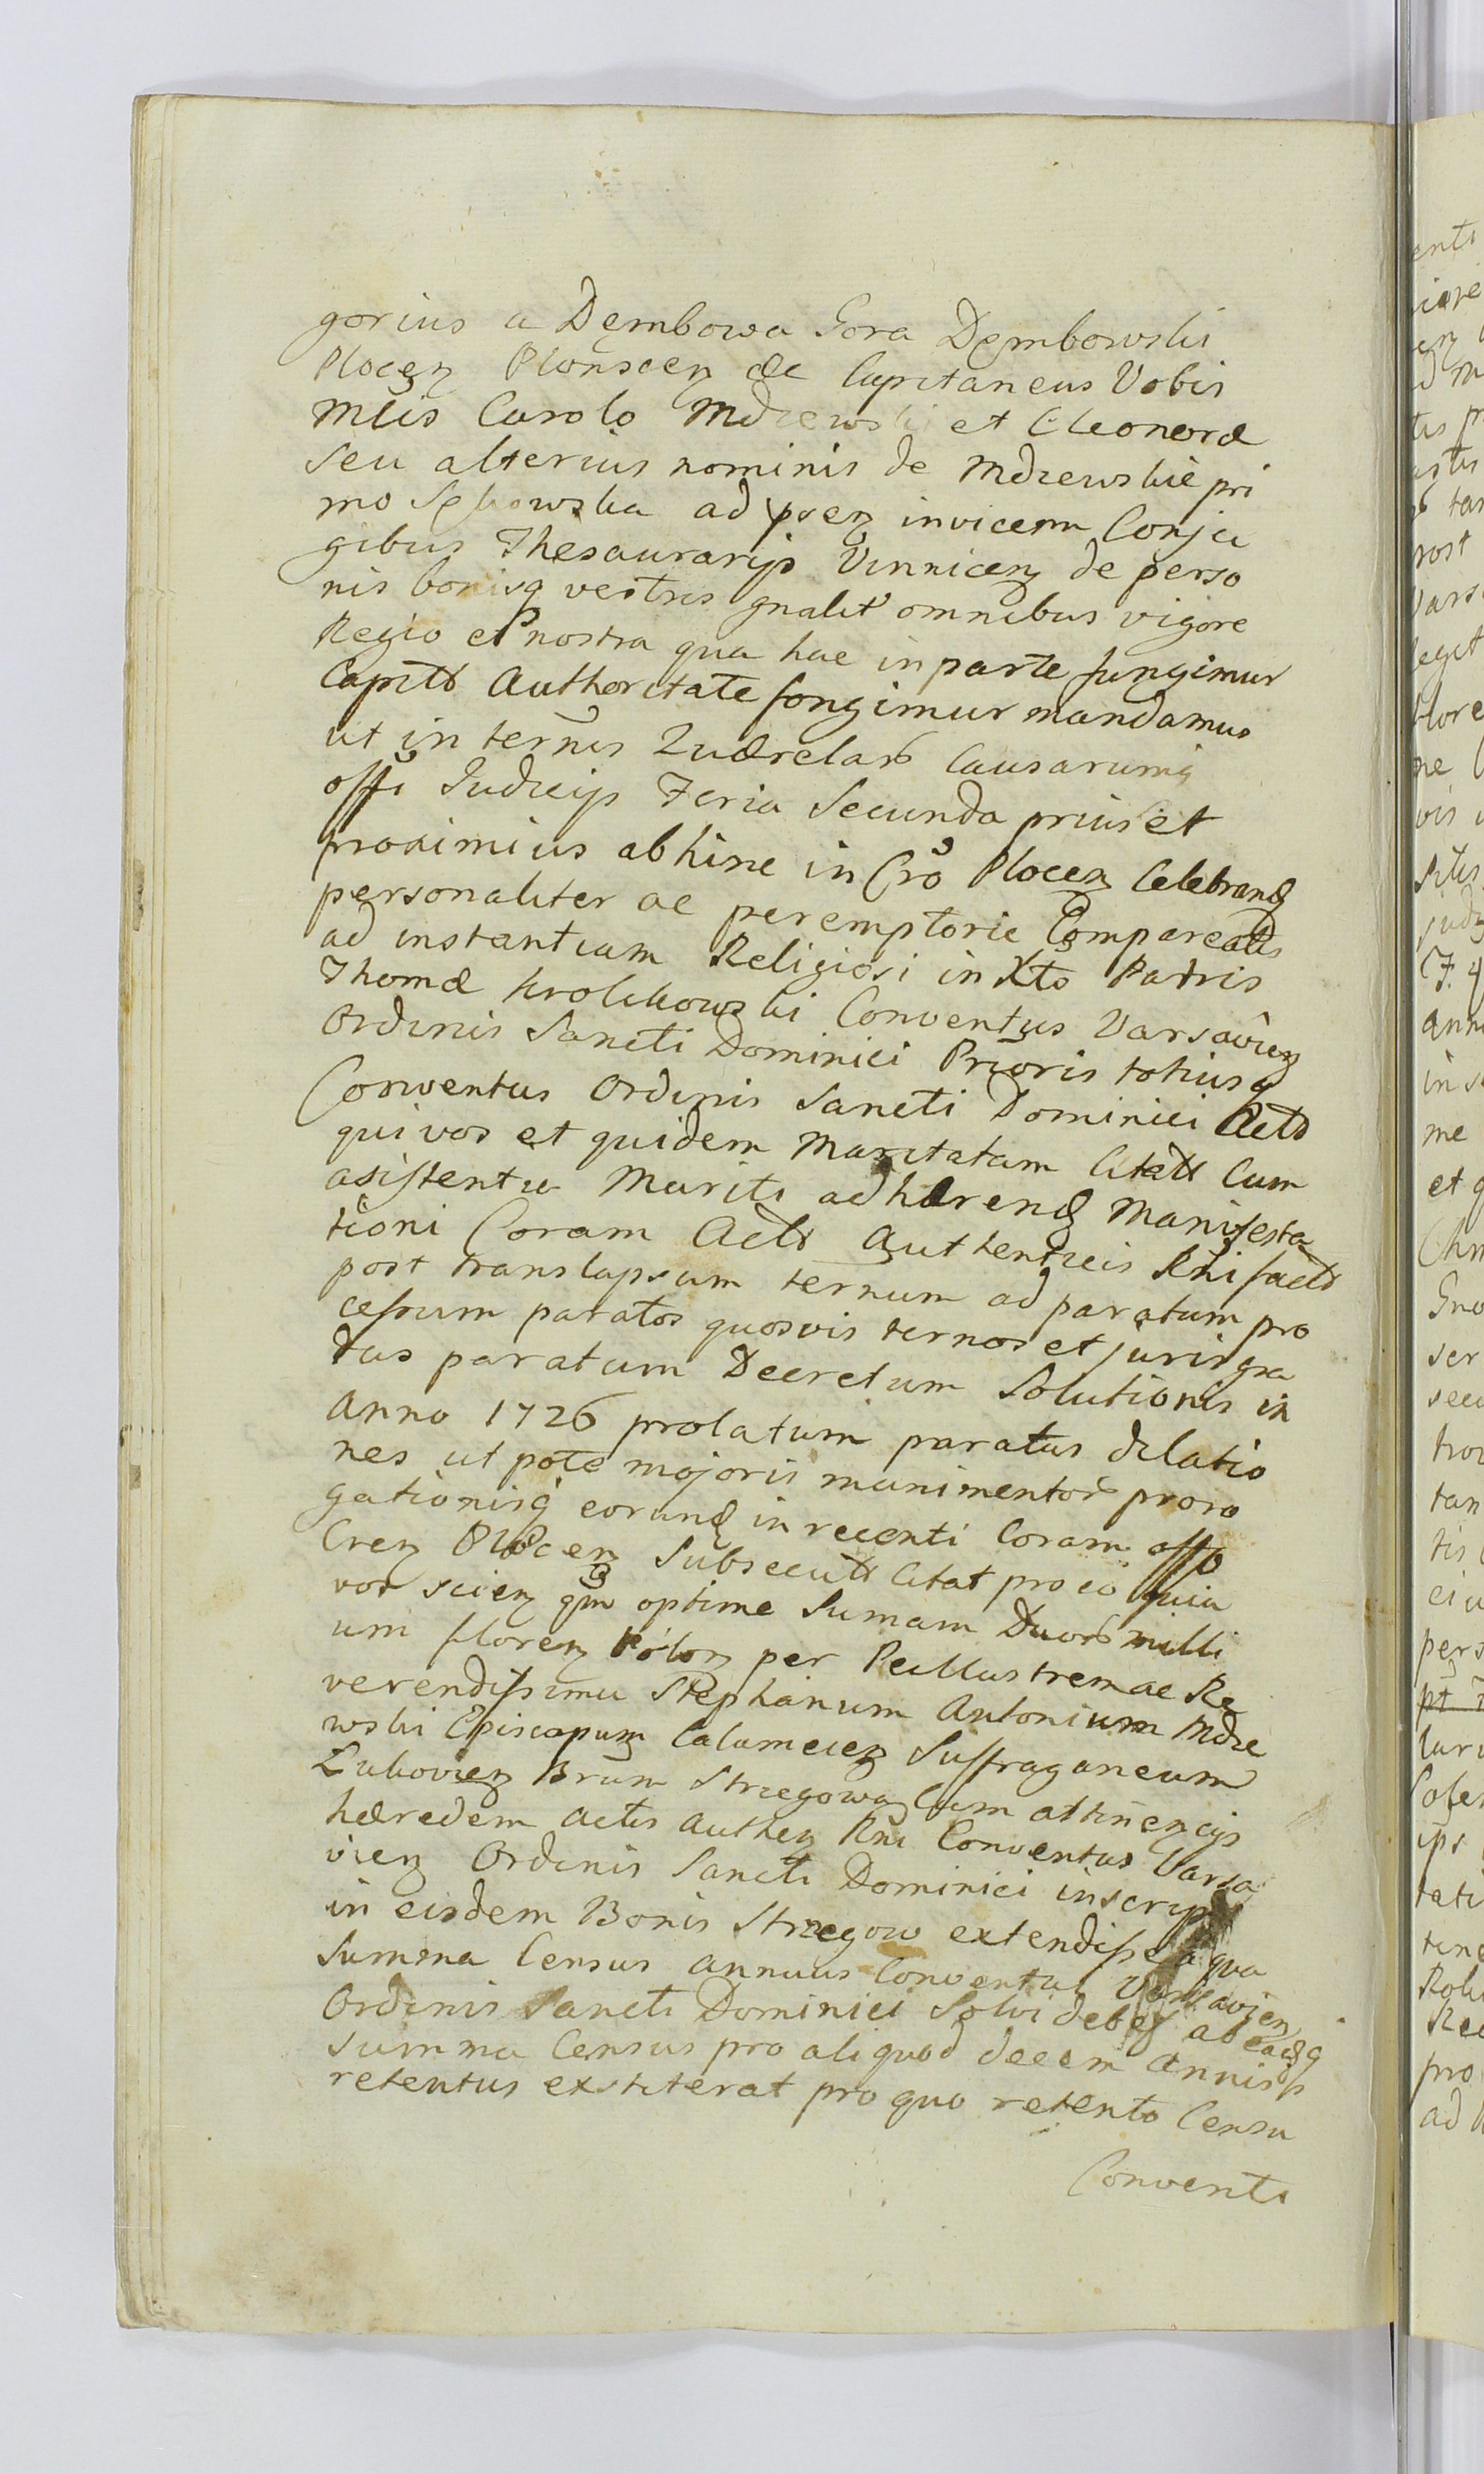 gorius a Dęmbowa Gora Dęmbowski
Plocen Plonscen &c Capitaneus Vobis
Mlis Carolo Mdzewski et Eleonoræ
seu alterius nominis de Mdzewskie pri
mo ad psen invicem Conju
gibus Thesaurarijs Vinnicen de perso
nis bonisq vestris gnalit omnibus vigore
Regio et nostra qua hac in parte fungimur
Capitli Authoritate fongimur mandamus
ut in ternis Quærelar Causarumq
offi Judicijs Feria Secunda prius et
proximius abhinc in Cro Plocen Celebrand
personaliter ac peremptorie Compareatis
ad instantiam Religiosi in Xto Patris
Thomæ Krolikowski Conventus Varsavien
Ordinis Sancti Dominici Prioris totiusq
Conventus Ordinis Sancti Dominici
qui vos et quidem Maritatam Cum
asistentia Mariti adhærend Manifesta
tioni Coram Authenticis Rni
post translapsum ternum ad paratum pro
cessum paratos quosvis ternos et juris gra
dus paratum Decretum Solutionis in
Anno 1726 prolatum paratas dilatio
nes utpote majoris munimentor proro
gationisq eorund in recenti Coram offo
Cren Plocen Subsecut Citat pro eo quia
vos scien qm optime Sumam Duor milli
um floren Polon per Perillustrem ac Re
verendissimu Stephanum Antonium Mdze
wski Episcopum Calamcien Suffraganeum
Lukovien Brum Strzegowa Cum attinencijs
hæredem actis authen Rni Conventus Varsa
vien Ordinis Sancti Dominici inscrip
in eisdem Bonis Strzegow extendisse a qua
Summa Census annuus Conventui Varsavien
Ordinis Sancti Dominici Solvi debet ab eadq
summa Census pro aliquod decem annis
retentus extiterat pro quo retento Censu
Conventi